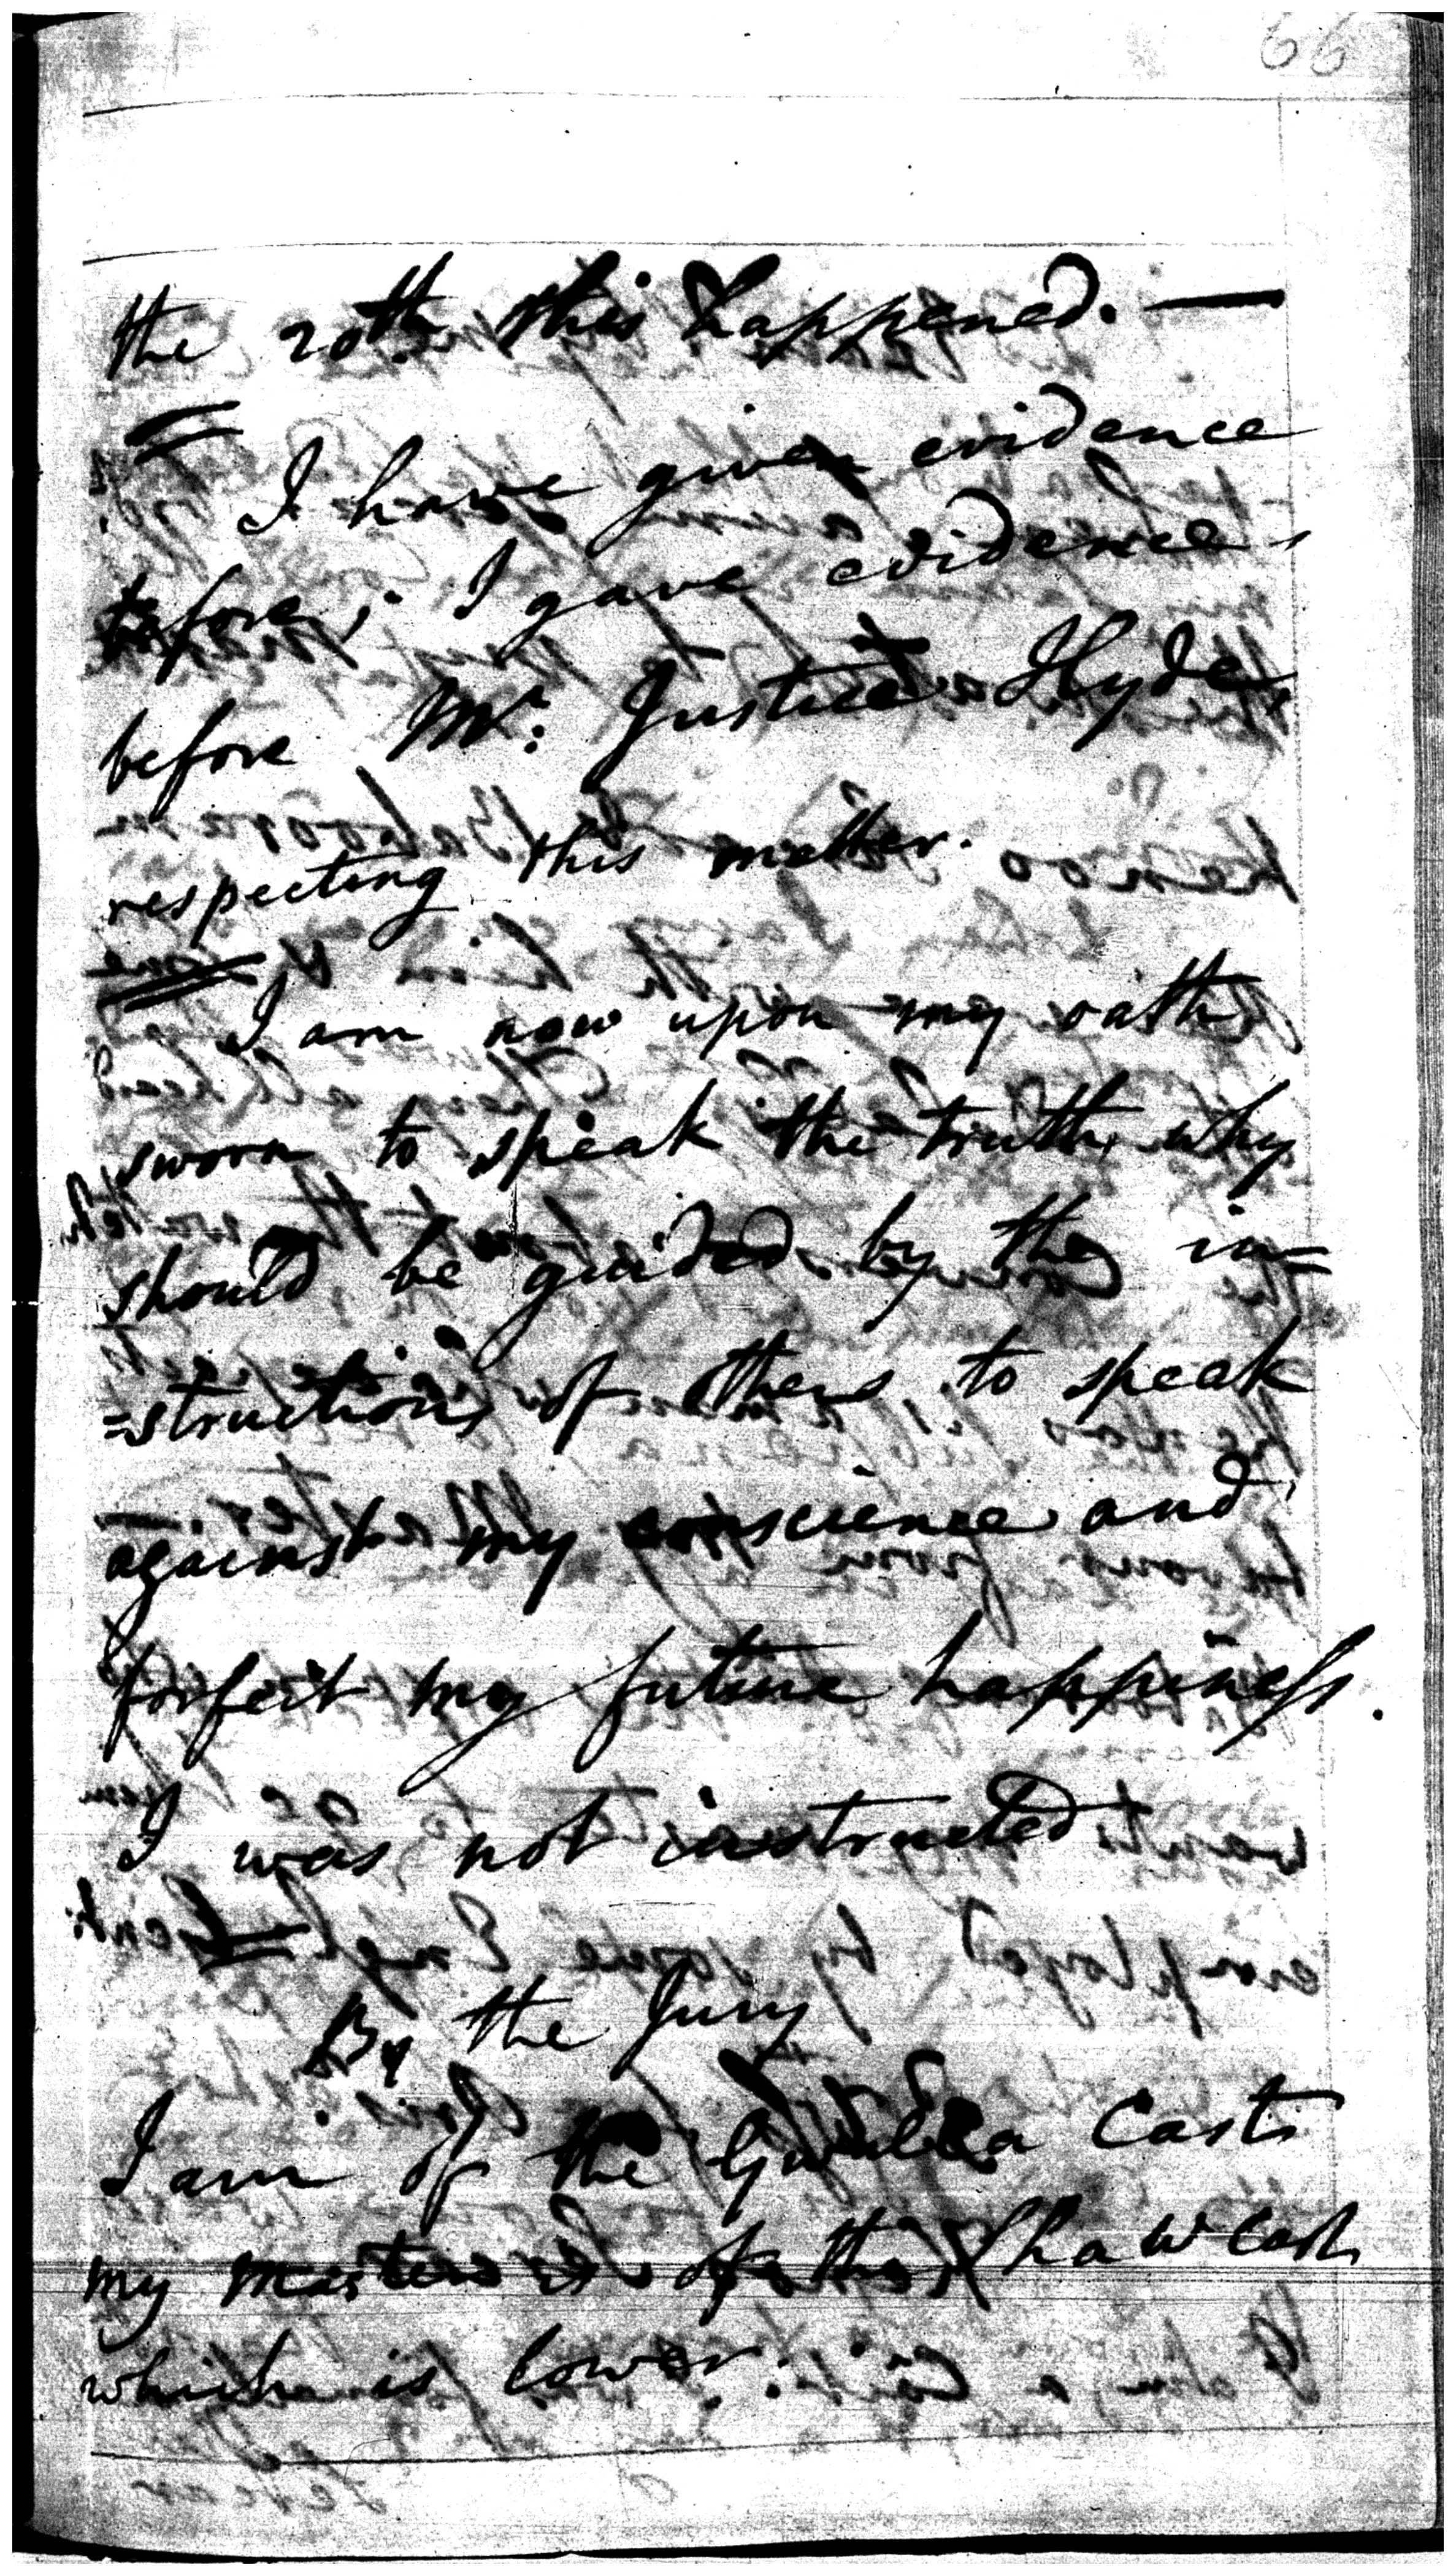 66
the 20th. this happened. —
I have given evidence
before; I gave evidence
before Mr. Justice Hyde,
respecting this matter.
I am now upon my oath
sworn to speak the truth, why
should be guided by the in=
=structions of others to speak
against my conscience and
forfeit my future happiness.
I was not instructed
By the Jury
I am of the Cast
my master is of the Cast
which is lower.